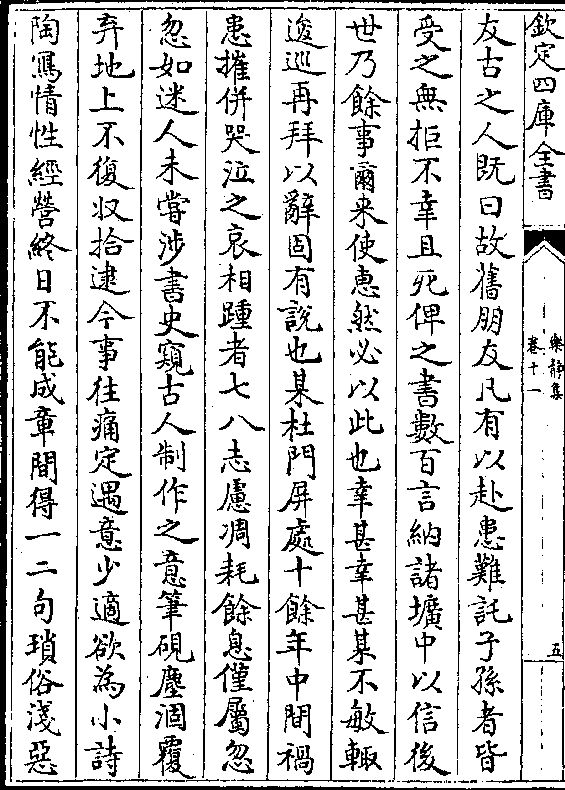 欽定四庫全書
樂静集
卷十一
五
友古之人既曰故舊朋友凡有以赴患難託子孫者皆
受之無拒不幸且死俾之書數百言納諸壙中以信後
世乃餘事爾来使惠然必以此也幸甚幸甚某不敏輙
逡巡再拜以辭固有說也某杜門屏處十餘年中間禍
患摧併哭泣之哀相踵者七八志慮凋耗餘息僅屬忽
忽如迷人未嘗涉書史窺古人制作之意筆硯塵涸覆
弃地上不復収拾逮今事往痛定遇意少適欲為小詩
陶寫情性經營終日不能成章間得一二句瑣俗淺惡